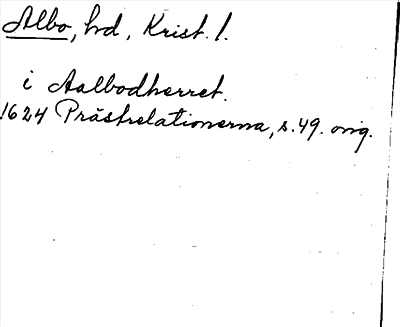 Albo, hd, Krist. l.
i Aalbodherret.
1624 Prästrelationerna, s. 49. orig.